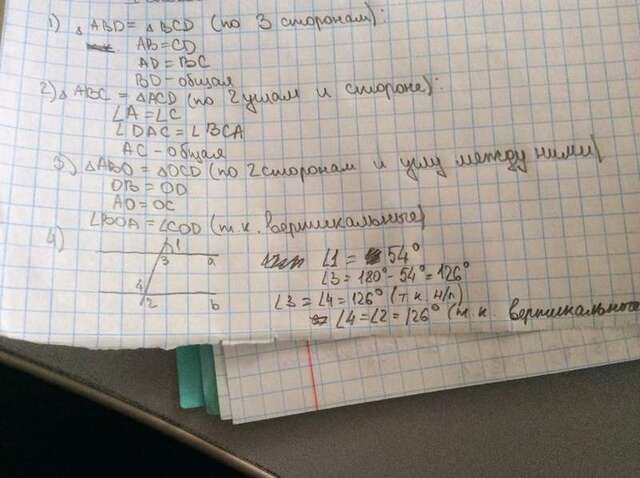 1) △ABD = △BCD (по 3 сторонам):
AB = CD
AD = BC
BD - общая
2) △ABC = △ACD (по 2 углам и стороне):
∠A = ∠C
∠DAC = ∠BCA
AC - общая
3) △ABO = △OCD (по 2 сторонам и углу между ними)
OB = OD
AO = OC
∠BOA = ∠COD (т.к. вертикальные)
4)
1
3 a
4
2 b
∠1 = 54°
∠3 = 180° - 54° = 126°
∠3 = ∠4 = 126° (т.к. н/л)
∠4 = ∠2 = 126° (т.к. вертикальные